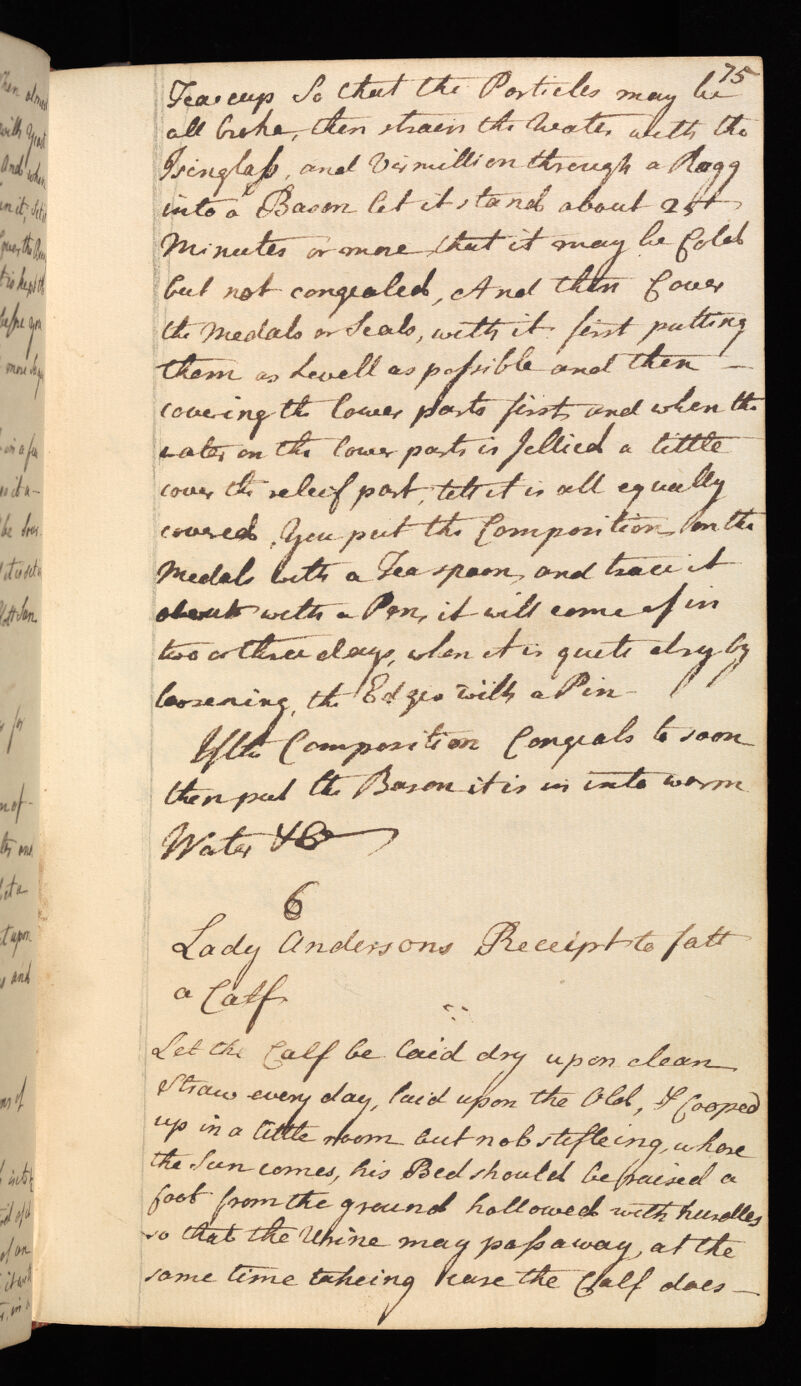 75
Tea=cup So that the Particles may be
all broke, then strain the Water with the
Isinglass, and Vermillion through a Ragg
into a Bason let it stand about
Minutes or more that it may be Cold
but not congealed, And then Cover
the Medals or Seals, with it first putting
them as Levell as possible and then —
covering the lower parts first, and when the
water on the lower parts is Jellied a little
cover the releif part, till it is all equally
covered, You put the Composition on the
Medals with a Tea spoon, and trace it
about with a Pen, it will come of in
two or three days, when it is quite dry by
loosening, the Edges with a Pin -
If the Composition Congeals to soon
then put the Bason it is in into warm
Water &c
6
Lady Andersons Receipt to fatt
a Calf
Let the Calf be laid dry upon clean
Straw every day, laid upon the Old, & Cooped
up in a little room but not stifleing, where
the Sun comes, his Bed should be raised a
foot from the ground hollowed with hurdles
so that the Urine may pass away, at the
same time takeing care the Calf does —